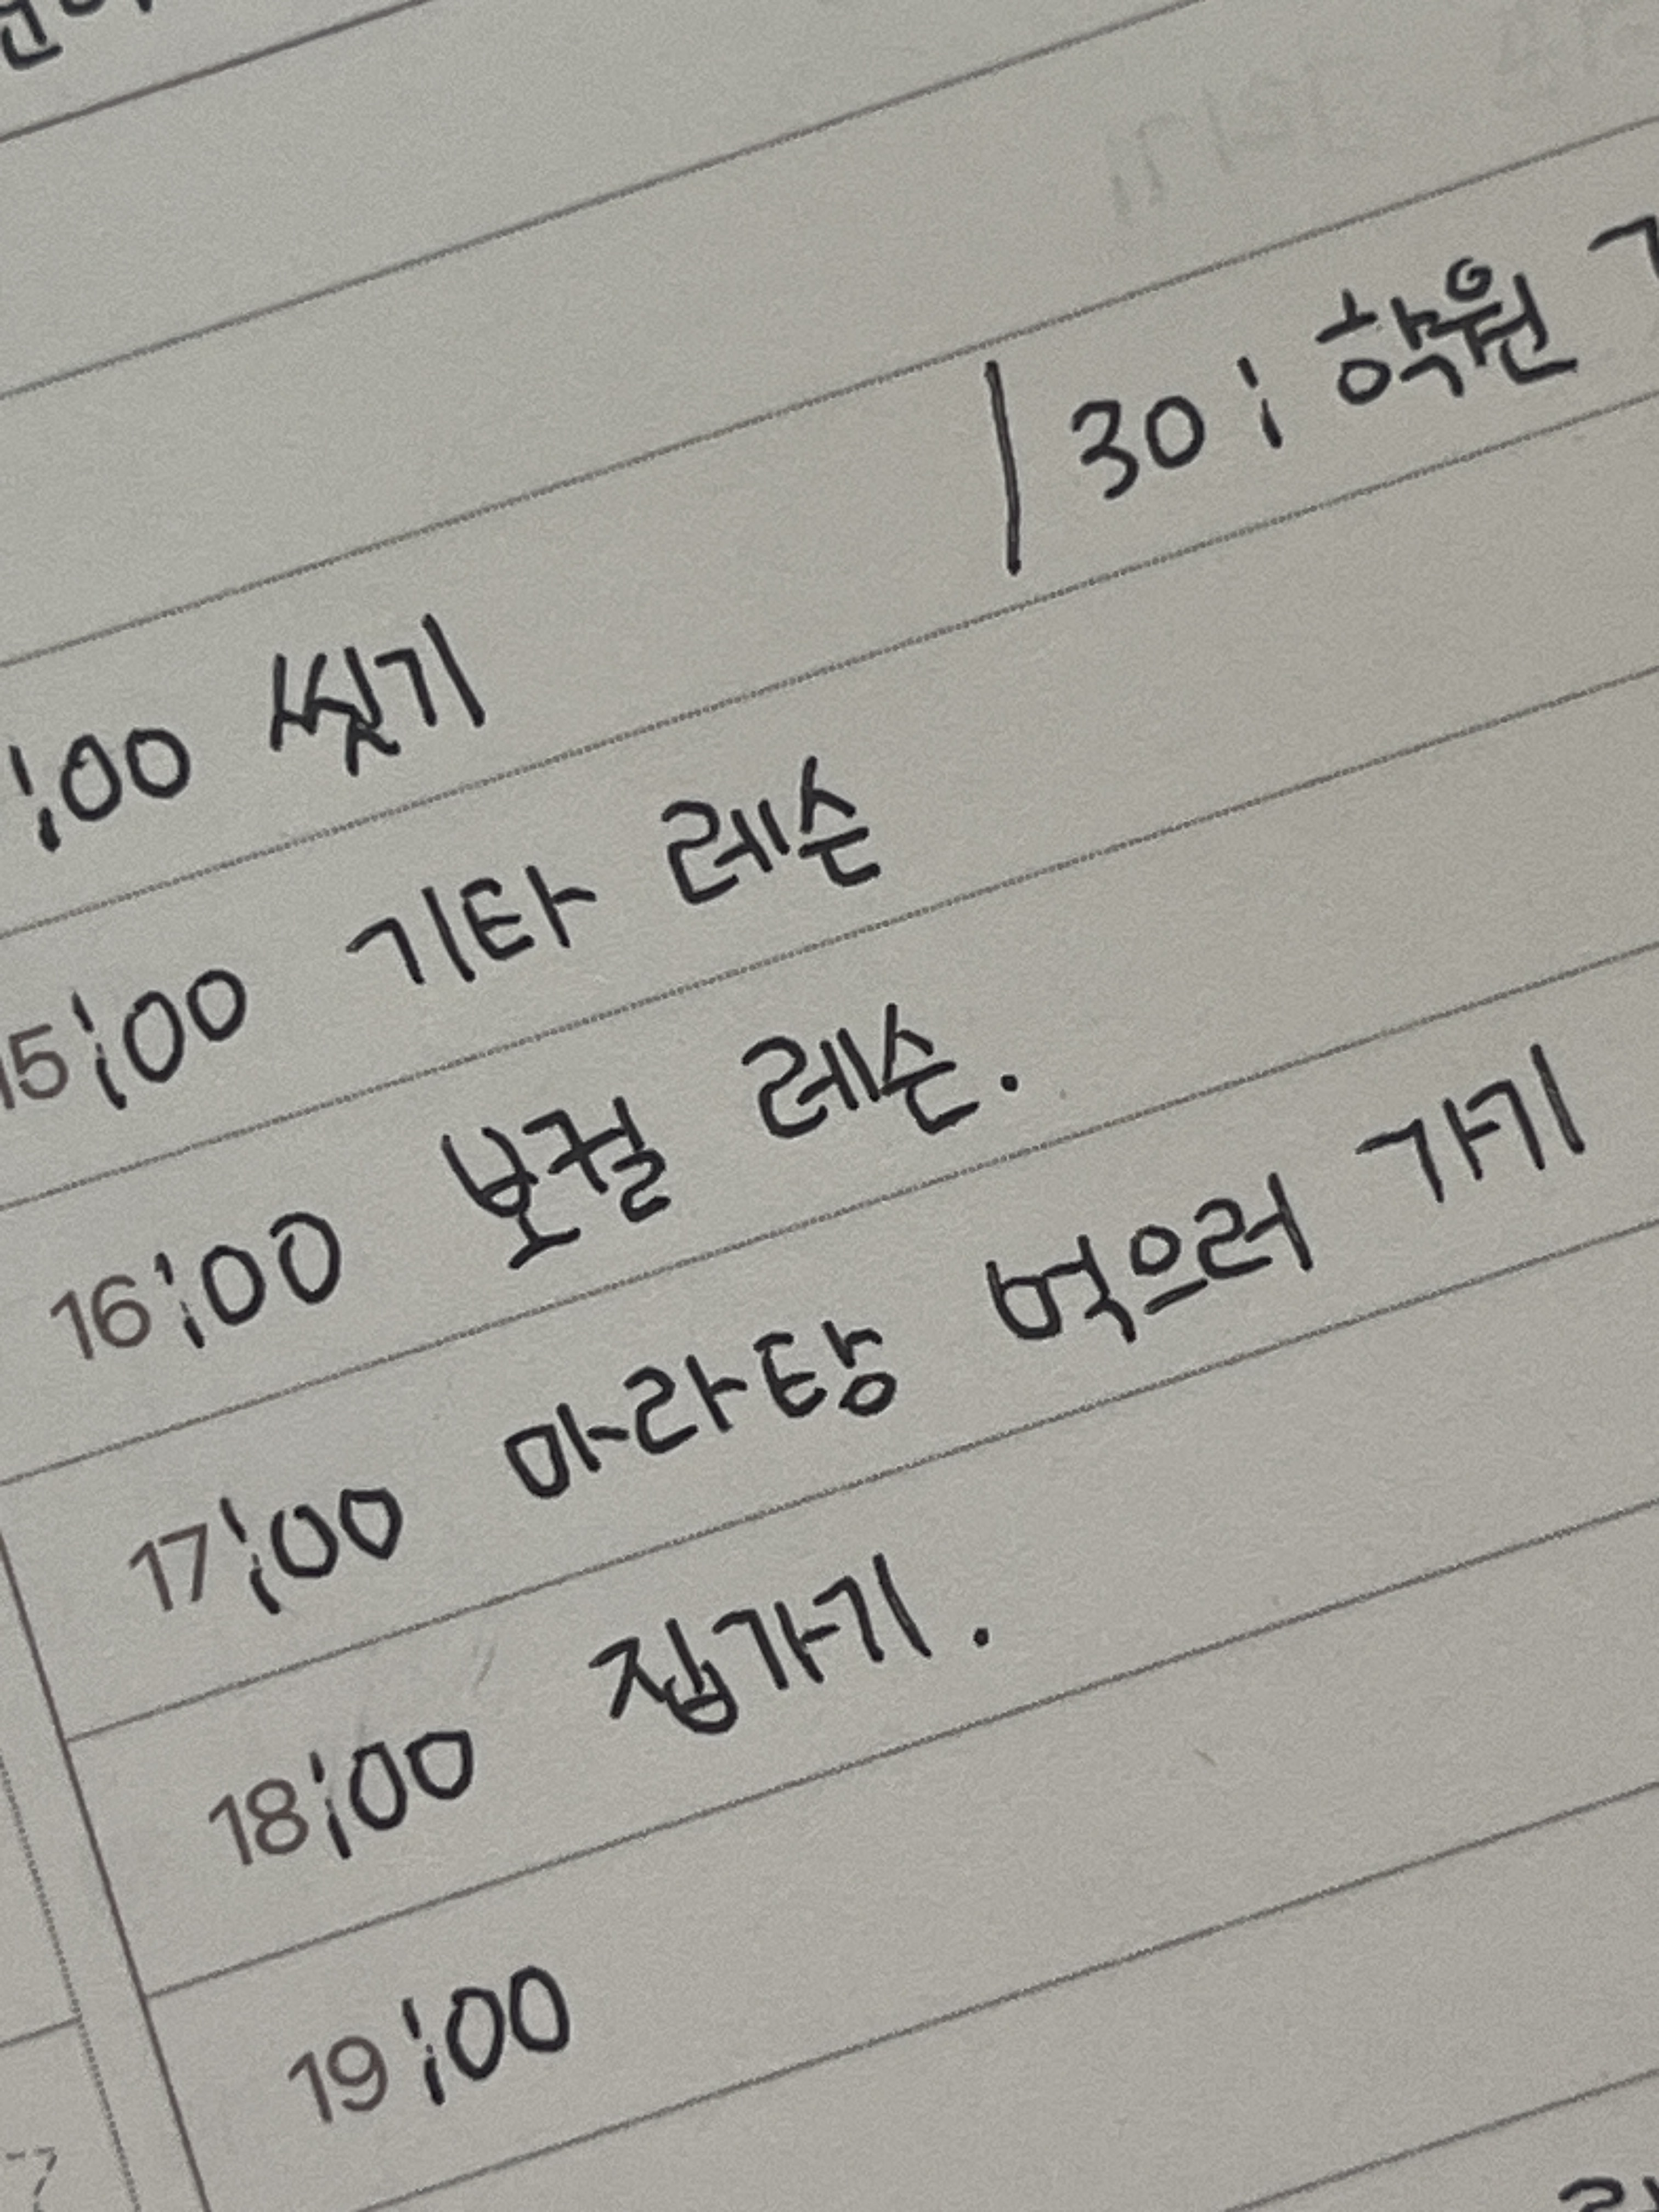 :00 씻기 | 30: 학원
15:00 기타 레슨
16:00 보컬 레슨.
17:00 마라탕 먹으러 가기
18:00 집가기.
19:00